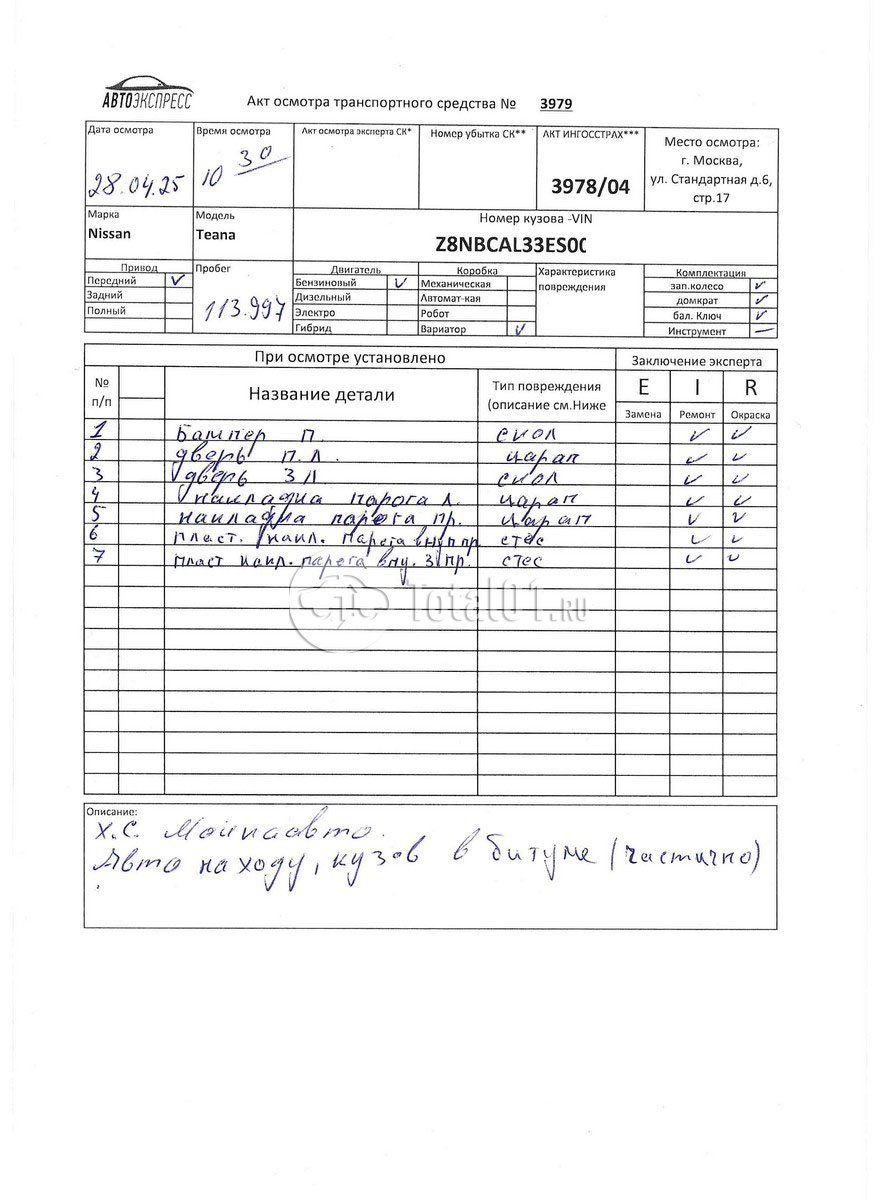 АВТОЭКСПРЕСС
Акт осмотра транспортного средства № 3979
Дата осмотра
28.04.25
Время осмотра
10 30
Акт осмотра эксперта СК*
Номер убытка СК**
АКТ ИНГОССТРАХ***
3978/04
Место осмотра:
г. Москва,
ул. Стандартная д.6,
стр.17
Марка
Nissan
Модель
Teana
Номер кузова -VIN
Z8NBCAL33ES0
Привод
Передний ✓
Задний
Полный
Пробег
113.997
Двигатель
Бензиновый ✓
Дизельный
Электро
Гибрид
Коробка
Механическая
Автомат-кая
Робот
Вариатор ✓
Характеристика
повреждения
Комплектация
зап.колесо ✓
домкрат ✓
бал. Ключ ✓
Инструмент —
При осмотре установлено
Заключение эксперта
№
п/п
Название детали
Тип повреждения
(описание см.Ниже
E I R
Замена Ремонт Окраска
1 Бампер П. скол ✓ ✓
2 дверь П.Л. царап ✓ ✓
3 дверь З Л скол ✓ ✓
4 накладка парога Л. царап ✓ ✓
5 накладка парога пр. царап ✓ ✓
6 пласт. накл. парога вну п пр. стес ✓ ✓
7 пласт накл. парога вну. З пр. стес ✓ ✓
Total01.RU
Описание:
Х.С.
Авто на ходу, кузов в битуме (частично)